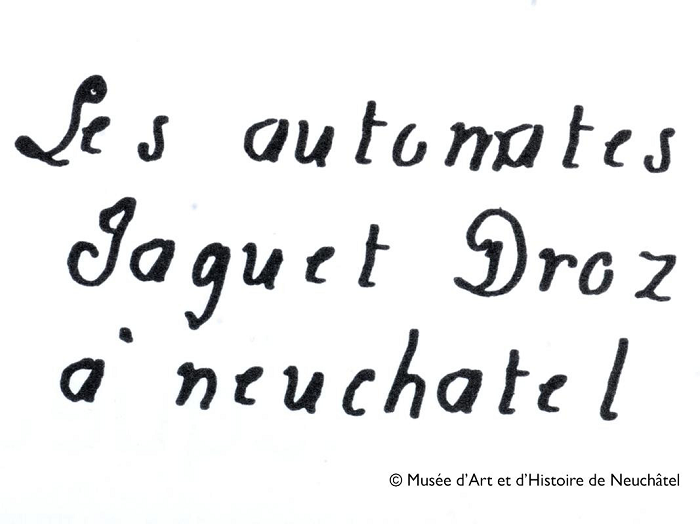 Les automates
Jaquet Droz
à neuchatel
© Musée d'Art et d'Histoire de Neuchâtel